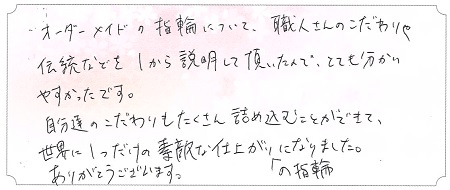 オーダーメイドの指輪について、職人さんのこだわりや
伝統などを1から説明して頂いたので、とても分かり
やすかったです。
自分達のこだわりもたくさん詰め込むことができて、
世界に1つだけの素敵な仕上がりになりました。
ありがとうございます。
「の指輪